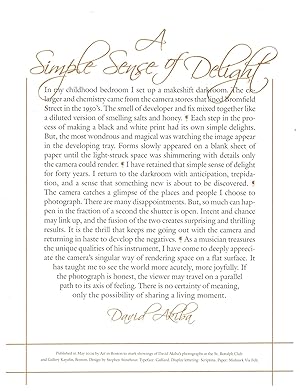 A
Simple Sense of Delight
In my childhood bedroom I set up a makeshift darkroom. The en-
larger and chemistry came from the camera stores that lined Bromfield
Street in the 1950's. The smell of developer and fix mixed together like
a diluted version of smelling salts and honey. ¶ Each step in the pro-
cess of making a black and white print had its own simple delights.
But, the most wondrous and magical was watching the image appear
in the developing tray. Forms slowly appeared on a blank sheet of
paper until the light-struck space was shimmering with details only
the camera could render. ¶ I have retained that simple sense of delight
for forty years. I return to the darkroom with anticipation, trepida-
tion, and a sense that something new is about to be discovered. ¶
The camera catches a glimpse of the places and people I choose to
photograph. There are many disappointments. But, so much can hap-
pen in the fraction of a second the shutter is open. Intent and chance
may link up, and the fusion of the two creates surprising and thrilling
results. It is the thrill that keeps me going out with the camera and
returning in haste to develop the negatives. ¶ As a musician treasures
the unique qualities of his instrument, I have come to deeply appreci-
ate the camera's singular way of rendering space on a flat surface. It
has taught me to see the world more acutely, more joyfully. If
the photograph is honest, the viewer may travel on a parallel
path to its axis of feeling. There is no certainty of meaning,
only the possibility of sharing a living moment.
David Akiba
Published in May by Art in Boston to mark showings of David Akiba's photographs at the St. Botolph Club
and Gallery Kayafas, Boston. Design by Stephen Stinehour. Typeface: Galliard. Display lettering: Scriptina. Paper: Mohawk Via Felt.